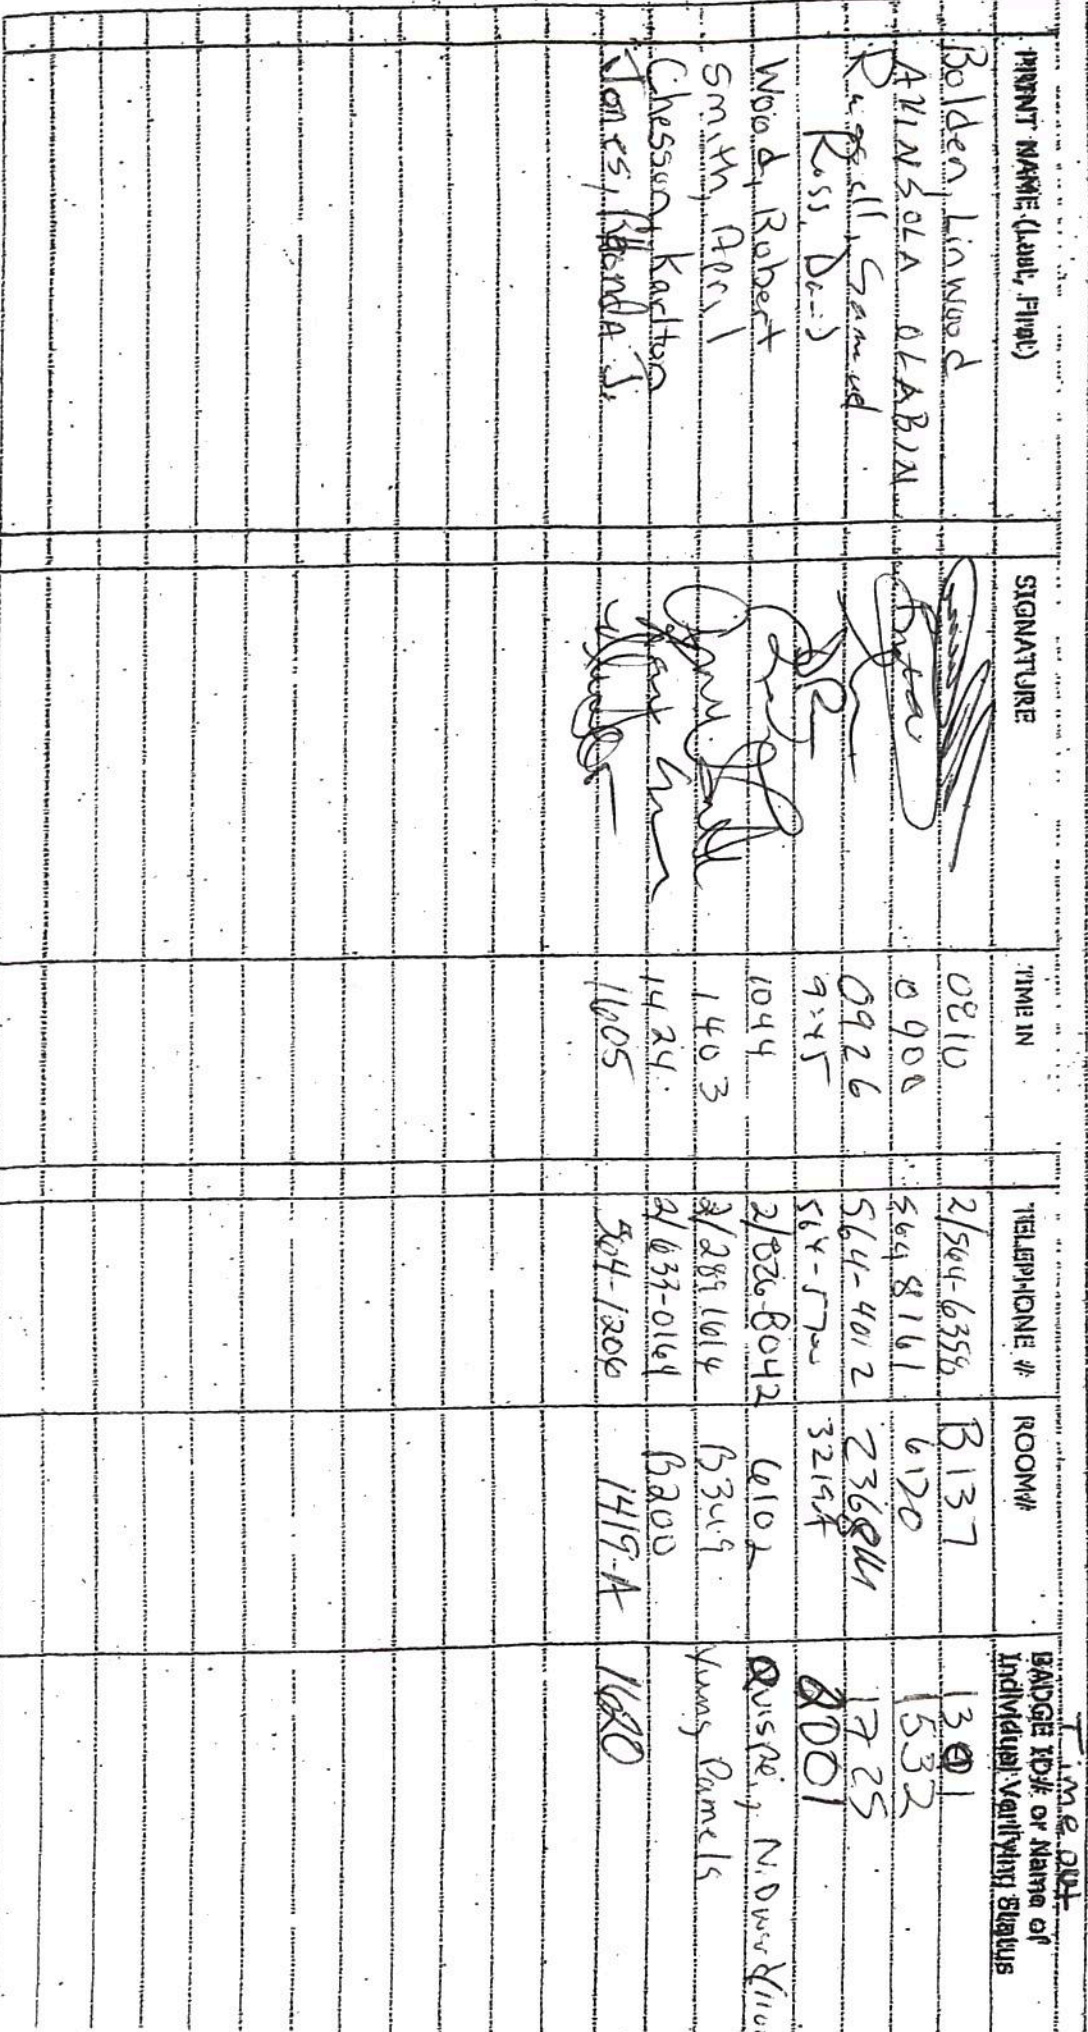 Time out
PRINT NAME (Last, First) SIGNATURE TIME IN TELEPHONE # ROOM# BADGE ID# or Name of Individual Verifying Status
Bolden, Linwood 0810 2/564-6356 B137 1301
AKINSOLA OLABIN 0900 564 8161 6120 1532
Russell, Samuel 0926 564-4012 1725
Ross, David 9:45 3219A 2001
Wood, Robert 1044 2/826-8042 6102 Quispe, N.
Smith, April 1403 2/289 1614 B349 Yung Pamela
Chesson, Karlton 1424 2/633-0164 B200
Jones, RhondA J. 1605 564-1206 1419-A 1620